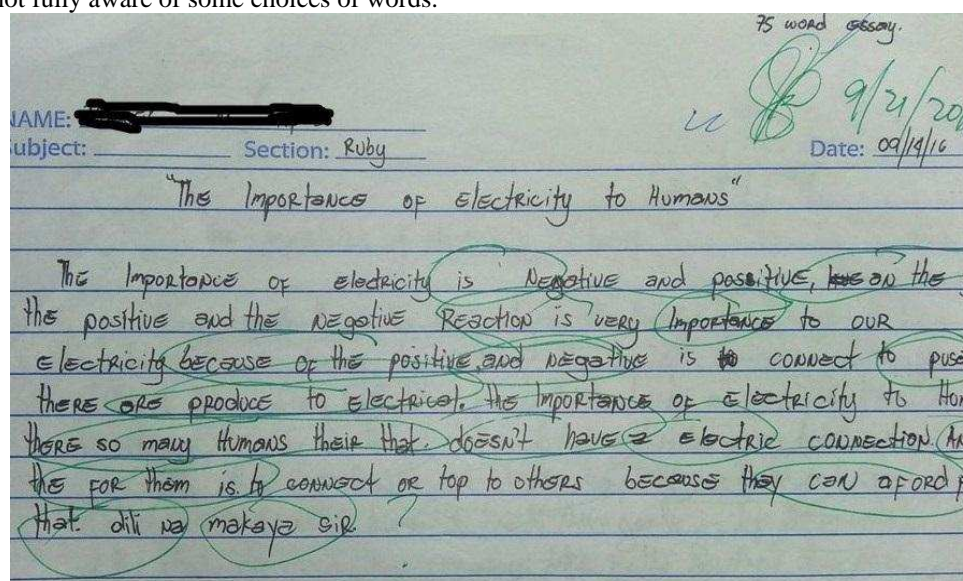 not fully aware of some choices of words.
75 word essay.
9/21/20
NAME:
Subject: Section: Ruby
Date: 09/19/16
"The Importance of Electricity to Humans"
The Importance of electricity is Negative and possitive, on the
the positive and the negative Reaction is very Importance to our
electricity because of the positive, and negative is to connect to
there are produce to electrical. the Importance of Electricity to
there so many Humans their that. doesn't have a electric connection.
the for them is. to connect or top to others because they can aford
that. dili na makaya sir. ?